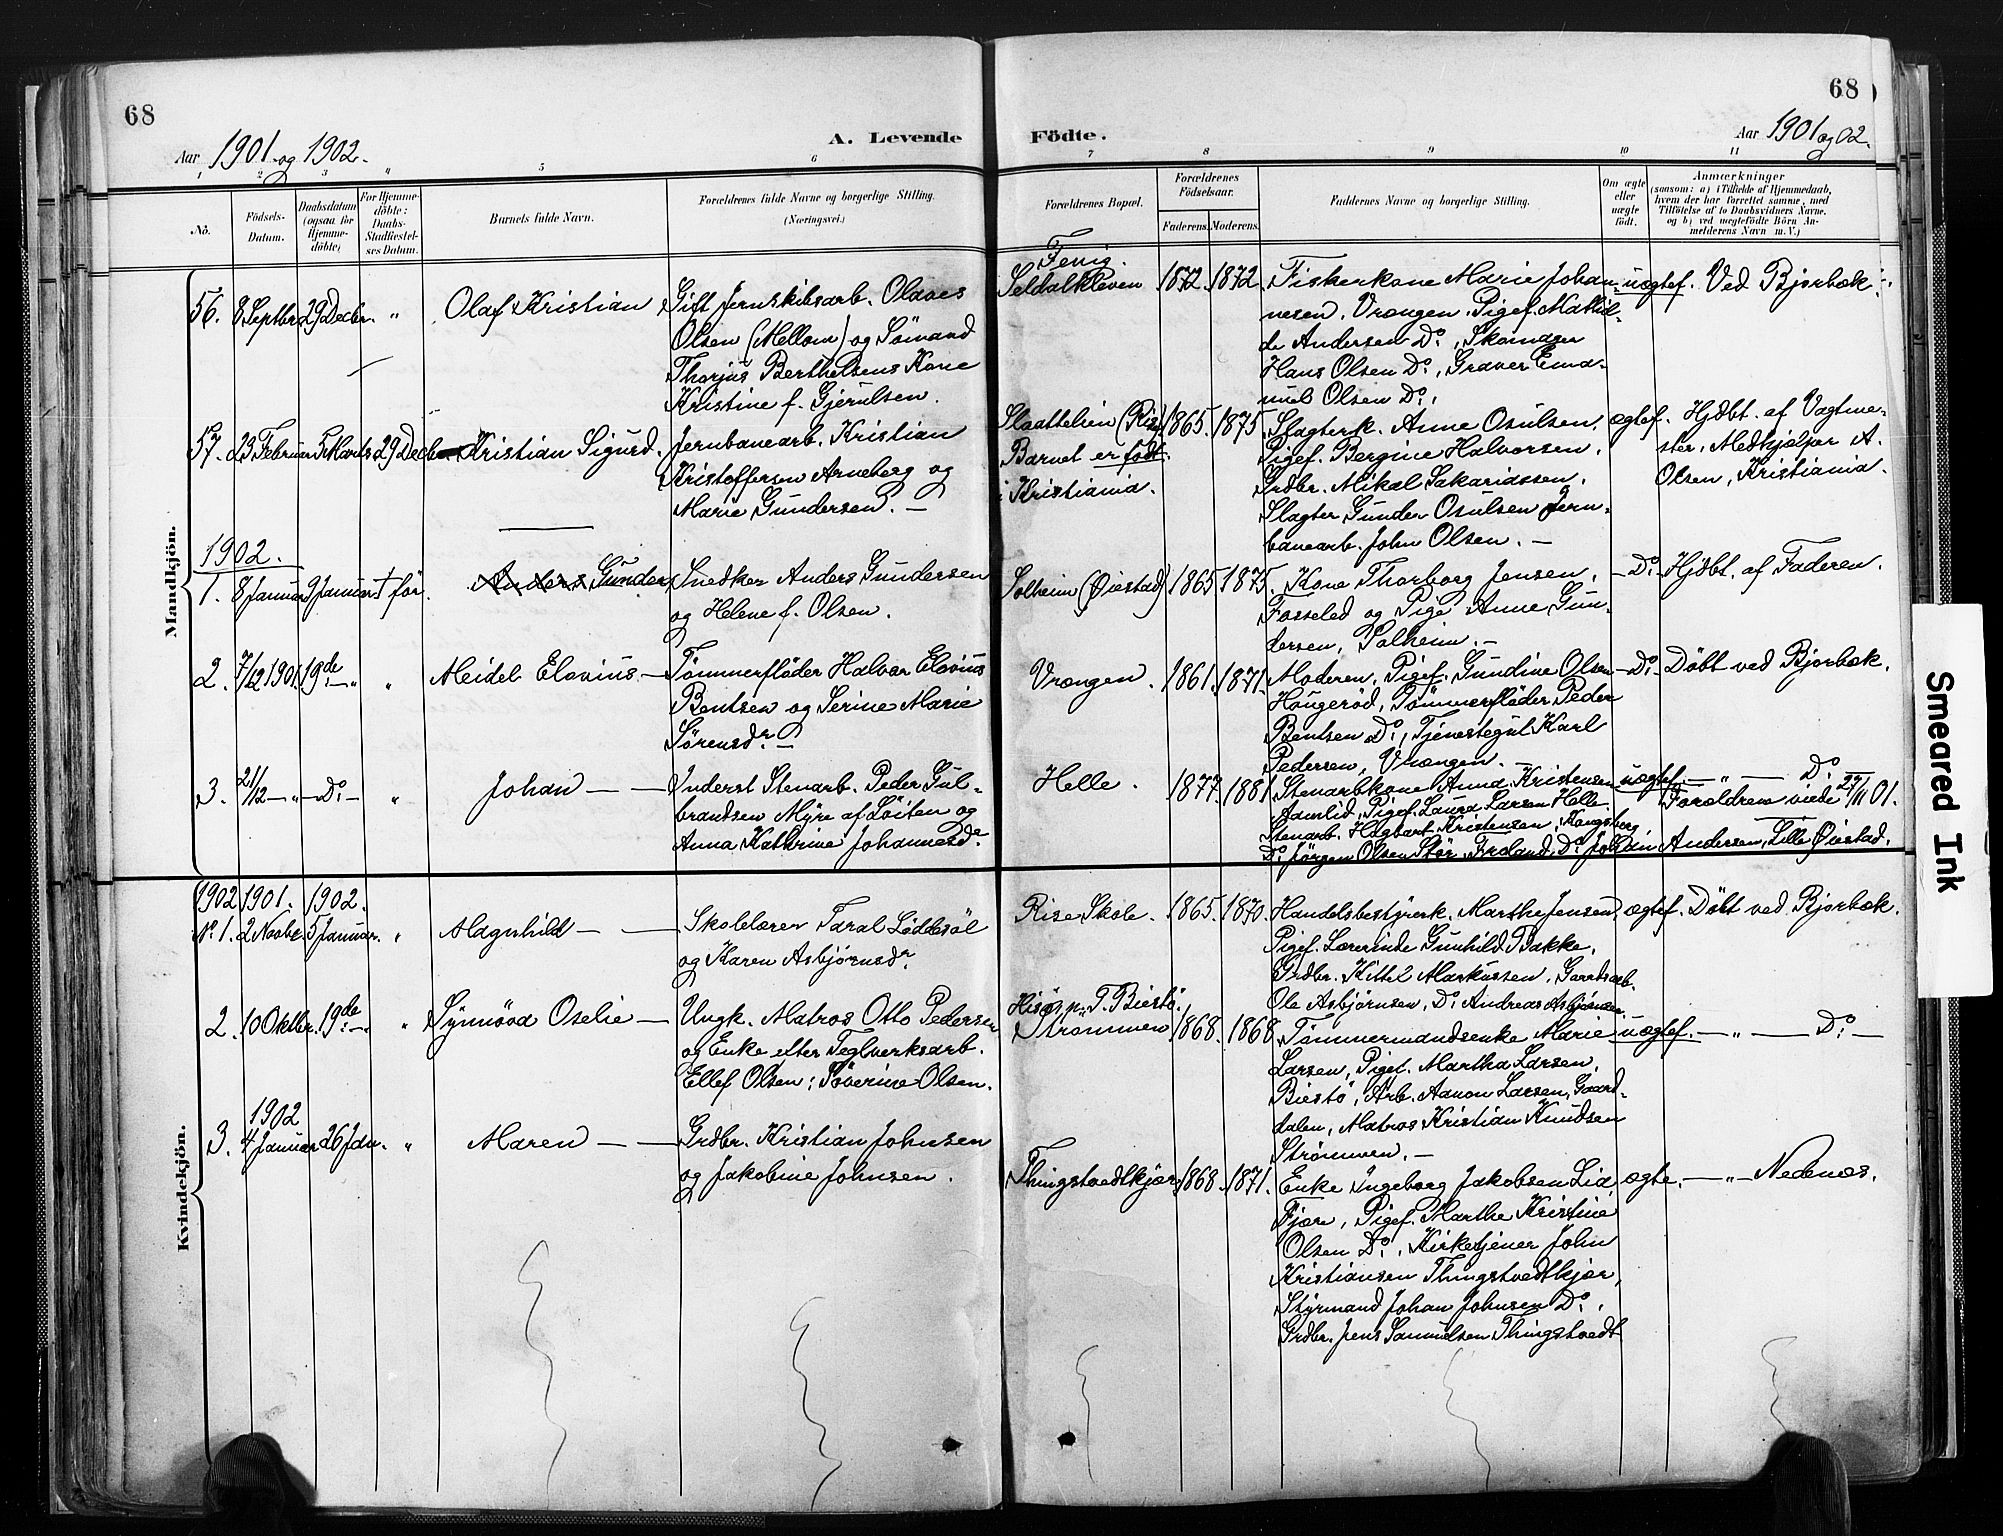 68
68
Aar 1901 og 1902.
A. Levende
Födte.
Aar 1901 og 02.
1
2
3
"
5
6
7
8
9
10
11
No.
Födsels-
Datum.
Daabsdatum
(ogsaa for
Hjemme-
döbte)
For Hjemme-
döbte:
Daabs-
Stadfæstel-
ses Datum.
Barnets fulde Navn.
Forældrenes fulde Navne og borgerlige Stilling.
(Næringsvei.)
Forældrenes Bopæl.
Forældrenes
Födselsaar.
Faderens.
Moderens.
Faddernes Navne og borgerlige Stilling.
Om ægte
eller
uægte
födt.
Anmærkninger
(saasom: a) i Tilfælde af Hjemmedaab,
hvem der har forrettet samme, med
Tilföielse af to Daabsvidners Navne,
og b) ved uægtefödte Börn An-
melderens Navn m. V.)
Mandkjön.
56. 8 Septbr. 29 Decbr. "
Olaf Kristian
Gift Jernskibsarb. Olaves
Olsen (Mellom) og Sömand
Thorjus Berthelsens Kone
Kristine f. Gjerulsen.
Feviq.
Seldalkleven
1872. 1872.
Fiskerkone Marie Johan-
nesen, Vrængen, Pigef. Mathil-
de Andersen Do., Skomager
Hans Olsen Do., Graver Ema-
nuel Olsen Do.,
uægtef.
Ved Bjorbæk.
57. 23 Februar 5 Marts 29 Decbr.
Kristian Sigurd.
Jernbanearb. Kristian
Kristoffersen Arneberg og
Marie Gundersen. —
Slaattelien (Rise)
Barnet er födt
i Kristiania.
1865. 1875.
Slagterk. Anne Osulsen,
Pigef. Bergine Halvorsen,
Grdbr. Mikal Sakariassen,
Slagter Gunder Osulsen Jern-
banearb. John Olsen. —
ægtef.
Hjdbt. af Vagtme-
ster, Medhjælper A.
Olsen, Kristiania.
1902.
1. 8 Januar 9 Januar † för.
Anders Gunder,
Snedker Anders Gundersen
og Helene f. Olsen.
Solheim (Øiestad)
1865 1875.
Kone Thorborg Jensen,
Fosseled og Pige Anne Gun-
dersen, Solheim. —
— Do. —
Hjdbt. af Faderen.
2. 7/12 1901. 19de — " "
Meidel Elovius. —
Tömmerflöder Halvor Elovius
Bentsen og Serine Marie
Sörensdr. —
Vrængen.
1861. 1871.
Moderen, Pigef. Gundine Olsen
Haugeröd, Tömmerflöder Peder
Bentsen Do., Tjenestegut Karl
Pedersen, Vrængen. —
— Do. —
Döbt ved Bjorbæk.
3. 21/12 — " — Do. — "
Johan — —
Inderst Stenarb. Peder Gul-
brandsen Myre af Löiten og
Anna Kathrine Johannesdr.
Helle.
1877. 1881
Stenarbkone Anna Kristensen
Aamlid, Pigef. Laura Larsen Helle
Stenarb. Hagbart Kristensen, Kongsberg
Do. Jörgen Olsen Stör, Froland, Do. Johan Andersen, Lille Øiestad.
uægtef.
— " — Do. —
Forældrene viede 27/11 01.
Kvindekjön.
1902 1901. 1902.
No. 1. 2 Novbr. 5 Januar. "
Magnhild — —
Skolelærer Taral Löddesöl
og Karen Asbjörnsdr.
Rise Skole.
1865. 1870.
Handelsbestyrerk. Marthe Jensen,
Pigef. Lærerinde Gunhild Bakke,
Grdbr. Kittel Markussen, Gaardsarb.
Ole Asbjörnsen, Do. Andreas Asbjörnsen.
ægtef.
Döbt ved Bjorbæk.
2. 10 Oktbr. 19de — " "
Synnöva Oselie —
Ungk. Matros Otto Pedersen
og Enke efter Teglverksarb.
Ellef Olsen: Söverine Olsen.
Hisö sp., T. Biestö.
Strömmen
1868. 1868.
Tömmermandsenke Marie
Larsen, Pigef. Martha Larsen,
Biestö, Arb. Aanon Larsen, Gaard-
dalen, Matros Kristian Knudsen
Strömmen. —
uægtef.
— " — Do. —
1902
3. 4 Januar 26 Jan. "
Maren — —
Grdbr. Kristian Johnsen
og Jakobine Johnsen.
Thingstvedtkjær.
1868. 1871.
Enke Ingeborg Jakobsen Lia,
Fjære, Pigef. Marthe Kristine
Olsen Do., Kirketjener John
Kristiansen Thingstvedtkjær,
Styrmand Johan Johnsen Do.,
Grdbr. Jens Samuelsen Thingstvedt
ægte.
— " — Nedenæs.
Smeared Ink